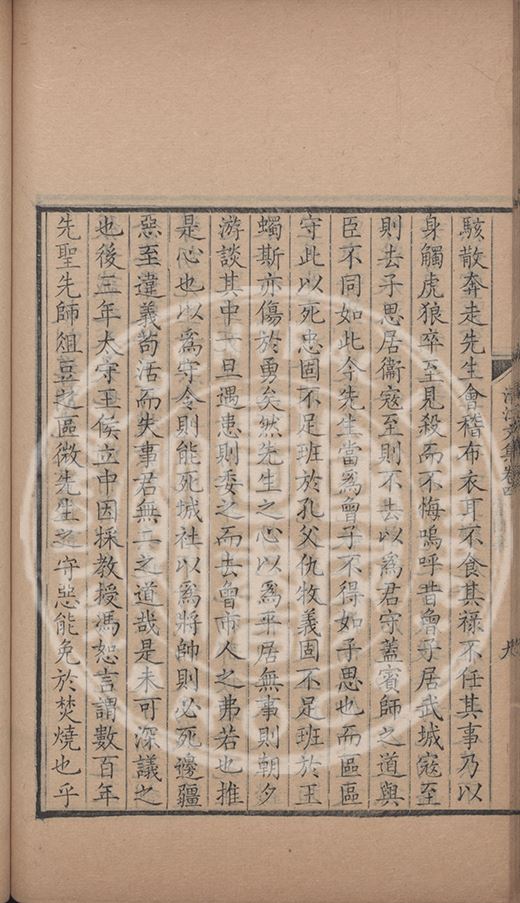 駭散奔走先生會稽布衣耳不食其祿不任其事乃以
身觸虎狼卒至見殺而不悔嗚呼昔曾子居武城寇至
則去子思居衞寇至則不去以爲君守蓋賓師之道與
臣不同如此今先生當爲曾子不得如子思也而區區
守此以死忠固不足班於孔父仇牧義固不足班於王
蠋斯亦傷於勇矣然先生之心以爲平居無事則朝夕
游談其中一旦遇患則委之而去曾市人之弗若也推
是心也以爲守令則能死城社以爲將帥則必死邊疆
惡至違義苟活而失事君無二之道哉是未可深議之
也後三年太守王侯立中因採教授馮恕言謂數百年
先聖先師俎豆之區微先生之守惡能免於焚燒也乎